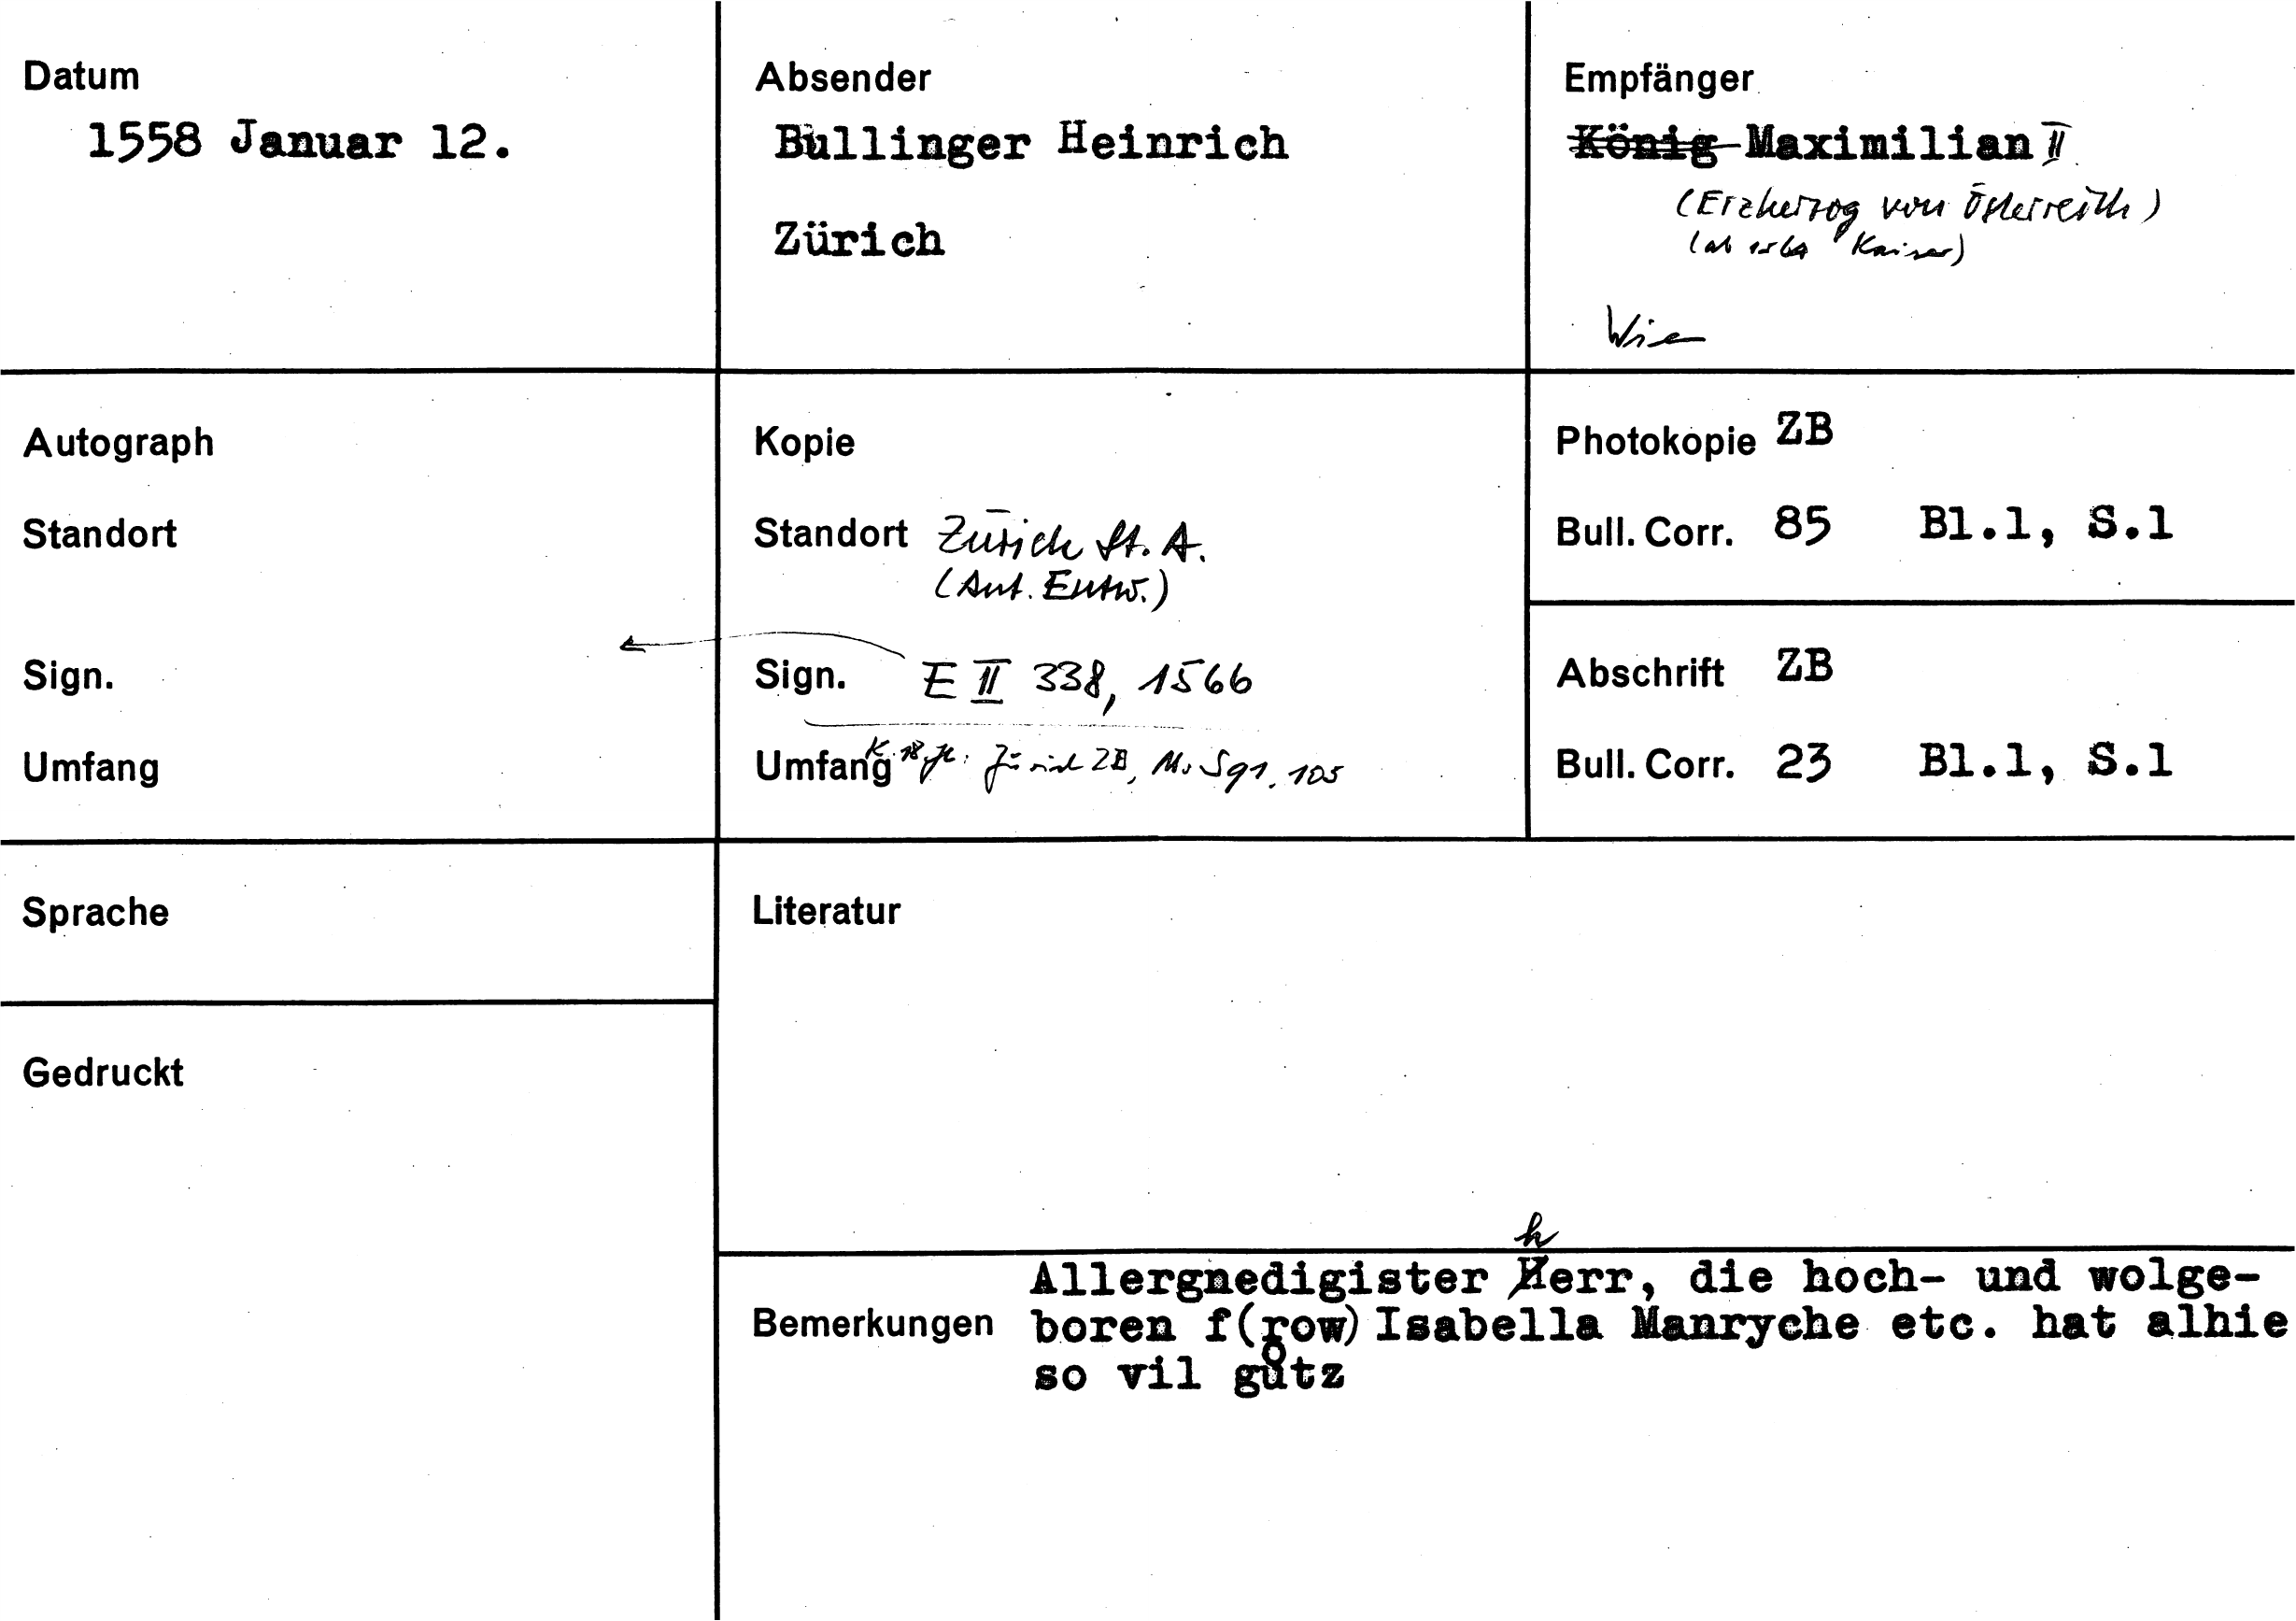 Datum
1558 Januar 12.
Absender
Bullinger Heinrich
Zürich
Empfänger
König Maximilian II
(Erzherzog von Österreich)
(ab 1564 Kaiser)
Wien
Autograph
Standort
Sign.
Umfang
Kopie
Standort Zürich St. A.
(Aut. Entw.)
Sign. E II 338, 1566
Umfang K. 18. Jh.: Zürich ZB, Ms S 91, 105
Photokopie ZB
Bull. Corr. 85 Bl.1, S.1
Abschrift ZB
Bull. Corr. 23 Bl.1, S.1
Sprache
Gedruckt
Literatur
Bemerkungen
h
Allergnedigister Herr, die hoch- und wolge-
boren f(row) Isabella Manryche etc. hat alhie
so vil gůtz